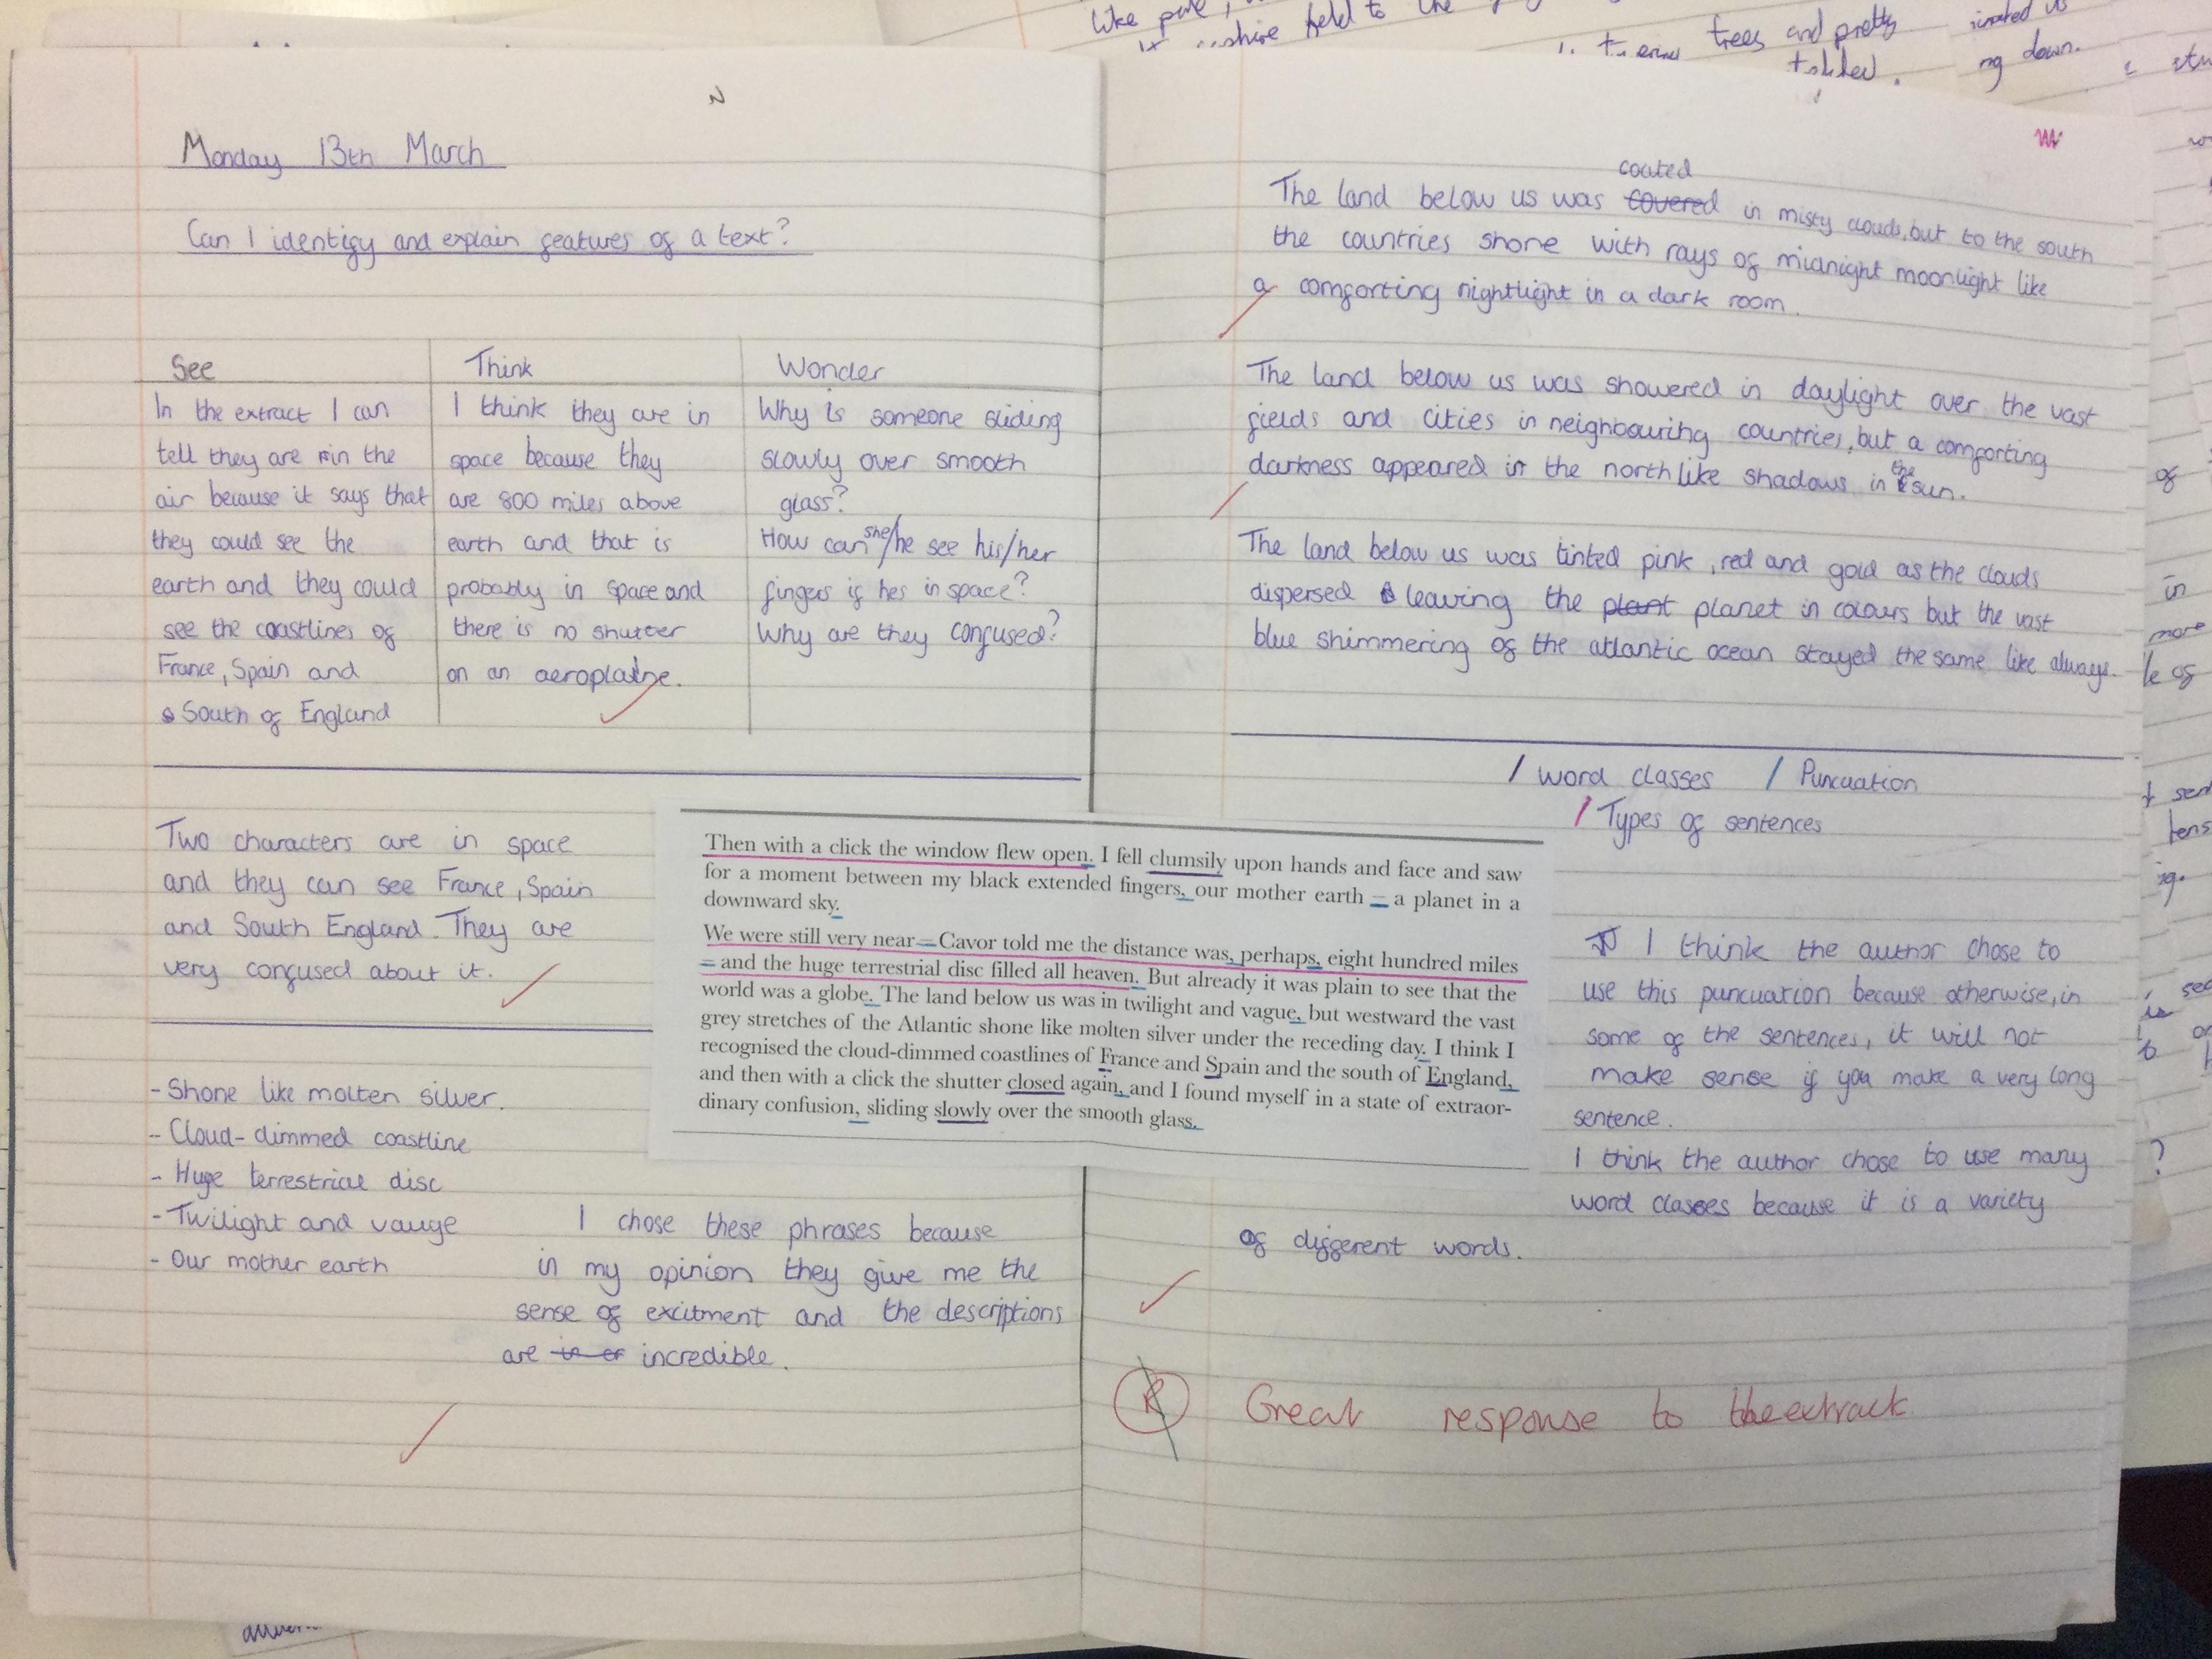 Monday 13th March
Can I identify and explain features of a text?
See
In the extract I can
tell they are in the
air because it says that
they could see the
earth and they could
see the coastlines of
France, Spain and
South of England
Think
I think they are in
space because they
are 800 miles above
earth and that is
probably in space and
there is no shutter
on an aeroplane.
Wonder
Why is someone sliding
slowly over smooth
glass?
How can she/he see his/her
fingers if hes in space?
Why are they confused?
Two characters are in space
and they can see France, Spain
and South England. They are
very confused about it.
- Shone like molten silver.
- Cloud-dimmed coastline
- Huge terrestrial disc
- Twilight and vauge
- Our mother earth
I chose these phrases because
in my opinion they give me the
sense of excitment and the descriptions
are incredible.
Then with a click the window flew open. I fell clumsily upon hands and face and saw
for a moment between my black extended fingers, our mother earth – a planet in a
downward sky.
We were still very near – Cavor told me the distance was, perhaps, eight hundred miles
– and the huge terrestrial disc filled all heaven. But already it was plain to see that the
world was a globe. The land below us was in twilight and vague, but westward the vast
grey stretches of the Atlantic shone like molten silver under the receding day. I think I
recognised the cloud-dimmed coastlines of France and Spain and the south of England,
and then with a click the shutter closed again, and I found myself in a state of extraor-
dinary confusion, sliding slowly over the smooth glass.
coated
The land below us was covered in misty clouds, but to the south
the countries shone with rays of midnight moonlight like
a comforting nightlight in a dark room.
The land below us was showered in daylight over the vast
fields and cities in neighbouring countries, but a comforting
darkness appeared in the north like shadows in the sun.
The land below us was tinted pink, red and gold as the clouds
dispersed leaving the plant planet in colours but the vast
blue shimmering of the atlantic ocean stayed the same like always.
/ word classes / Puncuation
/ Types of sentences
I think the author chose to
use this puncuation because otherwise, in
some of the sentences, it will not
make sense if you make a very long
sentence.
I think the author chose to use many
word classes because it is a variety
of different words.
R Great response to the extract
like
field to the
trees and pretty
down.
of
in
more
le of
?